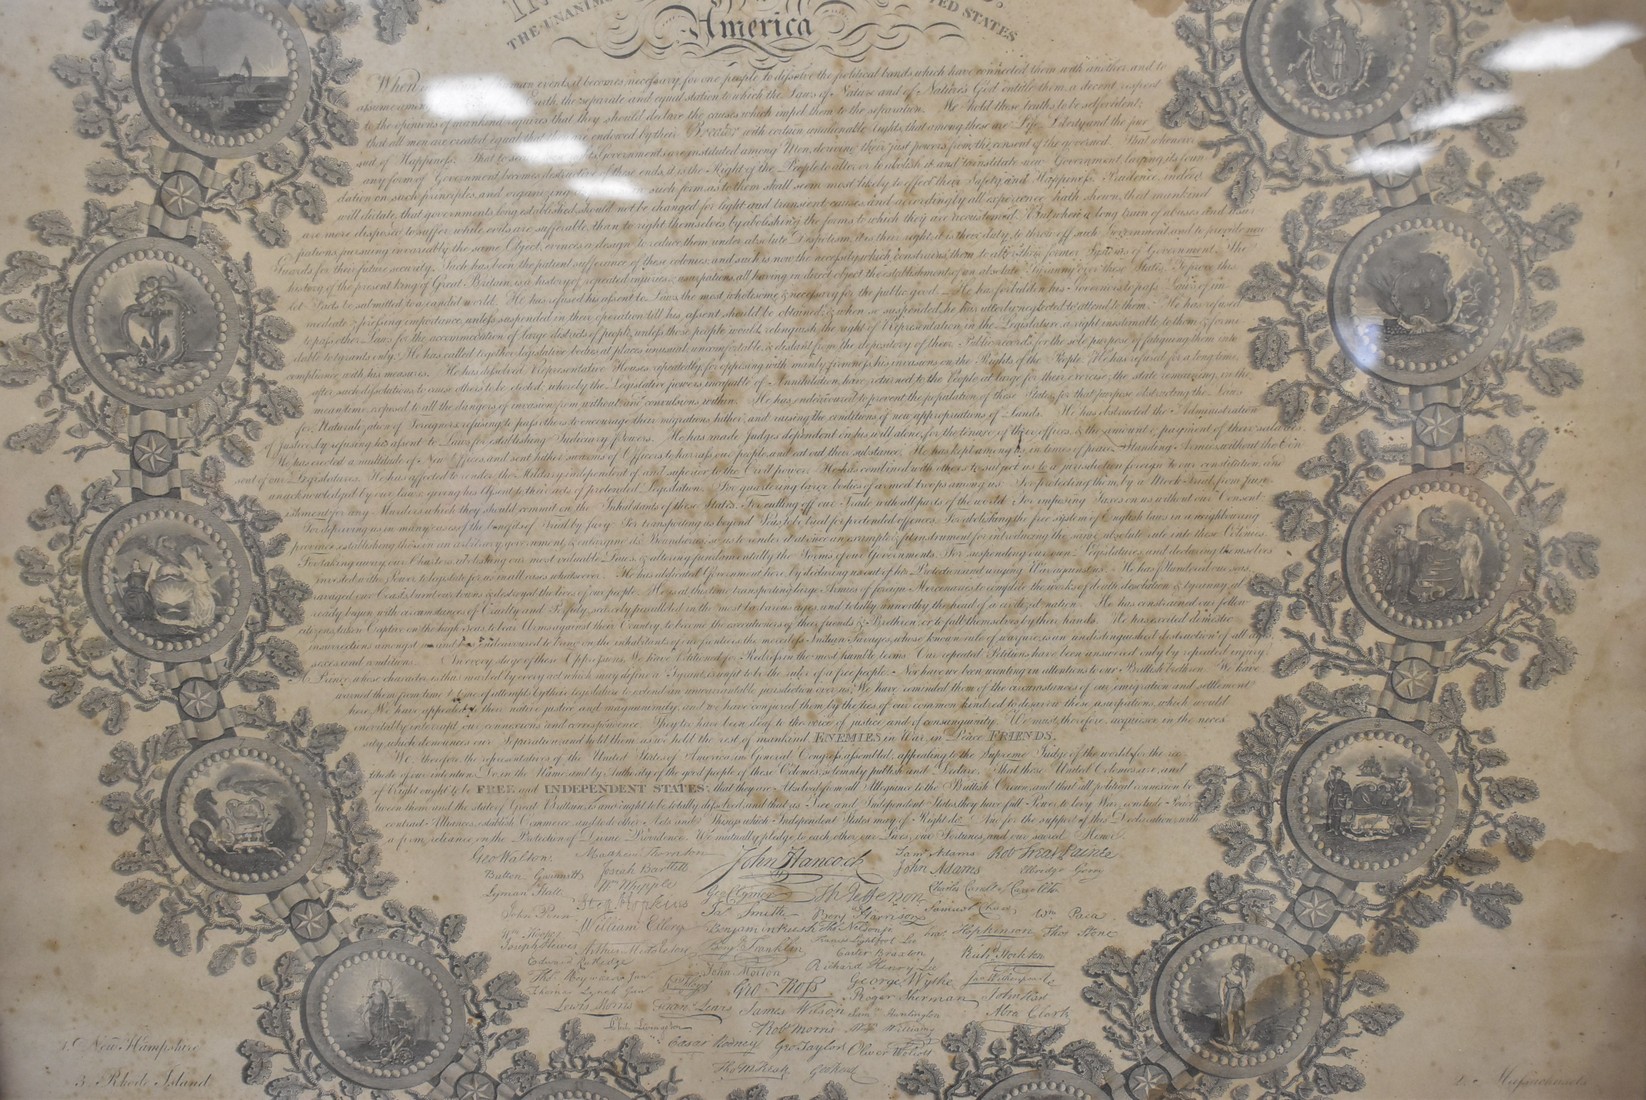 THE UNANIM ED STATES
America
When events, it becomes necessary for one people to dissolve the political bands which have connected them with another, and to
assume among the separate and equal station to which the Laws of Nature and of Nature's God entitle them, a decent respect
to the opinions of mankind requires that they should declare the causes which impel them to the separation. We hold these truths to be self evident;
that all men are created equal that they are endowed by their Creator with certain unalienable rights, that among these are Life Liberty and the pur
suit of Happiness. That to se Governments are instituted among Men, deriving their just powers from the consent of the governed. That whenever
any form of Government becomes destructive of these ends, it is the Right of the People to alter or to abolish it and to institute new Government, laying its foun
dation on such principles, and organizing such form, as to them shall seem most likely to effect their Safety and Happiness. Prudence, indeed
will dictate, that governments long established should not be changed for light and transient causes; and accordingly all experience hath shewn, that mankind
are more disposed to suffer, while evils are sufferable, than to right themselves by abolishing the forms to which they are accustomed. But when a long train of abuses and usur
pations, pursuing invariably the same Object, evinces a design to reduce them under absolute Despotism, it is their right, it is their duty to throw off such Government, and to provide new
Guards for their future security. Such has been the patient sufferance of these colonies, and such is now the necessity which constrains them to alter their former Systems of Government. The
history of the present king of Great Britain, is a history of repeated injuries & usurpations, all having in direct object the establishment of an absolute Tyranny over these States. To prove this
let Facts be submitted to a candid world. He has refused his assent to Laws, the most wholesome & necessary for the public good. He has forbidden his Governors to pass Laws of im
mediate & pressing importance, unless suspended in their operation till his assent should be obtained; & when so suspended, he has utterly neglected to attend to them. He has refused
to pass other Laws for the accommodation of large districts of people, unless those people would relinquish the right of Representation in the Legislature, a right inestimable to them & formi
dable to tyrants only. He has called together legislative bodies at places unusual, uncomfortable, & distant from the depository of their Public records, for the sole purpose of fatiguing them into
compliance with his measures. He has dissolved Representative Houses repeatedly, for opposing with manly firmness, his invasions on the Rights of the People. He has refused for a long time,
after such dissolutions, to cause others to be elected; whereby the Legislative powers, incapable of Annihilation, have returned to the People at large for their exercise; the state remaining, in the
mean time, exposed to all the dangers of invasion from without, and convulsions within. He has endeavoured to prevent the population of these States; for that purpose obstructing the Laws
for Naturalization of Foreigners; refusing to pass others to encourage their migrations hither, and raising the conditions of new appropriations of Lands. He has obstructed the Administration
of Justice, by refusing his assent to Laws for establishing Judiciary Powers. He has made Judges dependent on his will alone, for the tenure of their offices, & the amount & payment of their salaries.
He has erected a multitude of New Offices, and sent hither swarms of Officers to harass our people, and eat out their substance. He has kept among us, in times of peace, Standing Armies, without the Con
sent of our Legislatures. He has affected to render the Military independent of and superior to the Civil power. He has combined with others to subject us to a jurisdiction foreign to our constitution, and
unacknowledged by our laws; giving his Assent to their acts of pretended Legislation. For quartering large bodies of armed troops among us. For protecting them, by a Mock Trial, from pun
ishment for any Murders which they should commit on the Inhabitants of these States. For cutting off our Trade with all parts of the world. For imposing Taxes on us without our Consent.
For depriving us, in many cases, of the benefits of Trial by Jury. For transporting us beyond Seas to be tried for pretended offences. For abolishing the free system of English laws in a neighbouring
province, establishing therein an arbitrary government, & enlarging its Boundaries, so as to render it at once an example & fit instrument for introducing the same absolute rule into these Colonies.
For taking away our Charters, abolishing our most valuable Laws, & altering fundamentally the Forms of our Governments. For suspending our own Legislatures, and declaring themselves
invested with power to legislate for us in all cases whatsoever. He has abdicated Government here, by declaring us out of his Protection and waging War against us. He has plundered our seas,
ravaged our Coasts, burnt our towns, & destroyed the lives of our people. He is at this time transporting large Armies of foreign Mercenaries to complete the works of death, desolation & tyranny, al
ready begun with circumstances of Cruelty and Perfidy, scarcely paralleled in the most barbarous ages, and totally unworthy the head of a civilized nation. He has constrained our fellow
citizens, taken Captive on the high Seas, to bear Arms against their Country, to become the executioners of their friends & Brethren, or to fall themselves by their hands. He has excited domestic
insurrections amongst us and has endeavoured to bring on the inhabitants of our frontiers, the merciless Indian Savages, whose known rule of warfare, is an undistinguished destruction of all ages,
sexes and conditions. In every stage of these Oppressions, We have Petitioned for Redress in the most humble terms: Our repeated Petitions have been answered only by repeated injury:
A Prince, whose character is thus marked by every act which may define a Tyrant, is unfit to be the ruler of a free people. Nor have we been wanting in attentions to our Brittish brethren. We have
warned them from time to time of attempts by their legislature to extend an unwarrantable jurisdiction over us. We have reminded them of the circumstances of our emigration and settlement
here. We have appealed to their native justice and magnanimity, and we have conjured them by the ties of our common kindred to disavow these usurpations, which would
inevitably interrupt our connexions and correspondence. They too have been deaf to the voice of justice and of consanguinity. We must, therefore, acquiesce in the neces
sity, which denounces our Separation, and hold them, as we hold the rest of mankind ENEMIES, in War, in Peace FRIENDS.
We, therefore, the representatives of the United States of America, in General Congress, assembled, appealing to the Supreme Judge of the world for the rec
titude of our intentions, Do, in the Name, and by Authority of the good people of these Colonies, solemnly publish and Declare, That these United Colonies are, and
of Right ought to be FREE and INDEPENDENT STATES; that they are Absolved from all Allegiance to the Brittish Crown, and that all political connexion be
tween them and the state of Great Brittain, is and ought to be, totally dissolved; and that as Free and Independent States, they have full Power to levy War, conclude Peace,
contract Alliances, establish Commerce, and to do other Acts and Things which Independent States may of Right do. And for the support of this Declaration, with
a firm reliance on the Protection of Divine Providence, We mutually pledge to each other our Lives, our Fortunes, and our sacred Honor.
Geo Walton Matthew Thornton John Hancock Sam Adams Rob Treat Paine
Button Gwinnett Josiah Bartlett John Adams Elbridge Gerry
Lyman Hall Wm Whipple Geo Clymer Th Jefferson Charles Carroll of Carrollton
John Penn Step Hopkins Ja Smith Benj Harrison Samuel Chase Wm Paca
Wm Hooper William Ellery Benjamin Rush Thos Nelson jr Fras. Hopkinson Thos Stone
Joseph Hewes Arthur Middleton Benj Franklin Francis Lightfoot Lee
Edward Rutledge Carter Braxton Rich Stockton
Thos Heyward Junr John Morton Richard Henry Lee
Thomas Lynch Junr Geo Ross George Wythe
Lewis Morris Frans Lewis James Wilson Roger Sherman John Hart
Sam Huntington Abra Clark
Phil Livingston Robt Morris Wm Williams
Cæsar Rodney Geo Taylor Oliver Wolcott
Tho M Kean Geo Read
New Hampshire
3. Rhode Island
Massachusetts